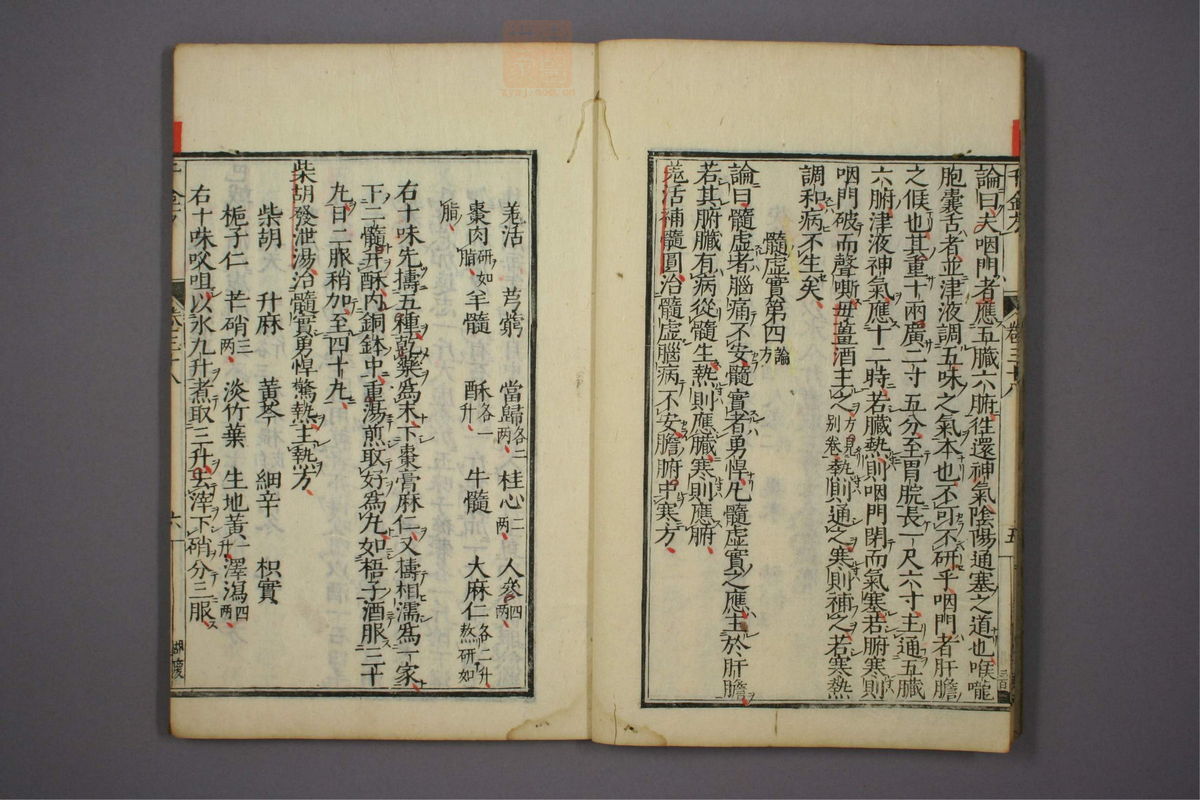 論曰夫咽門者應五臓六腑往還神氣陰陽通塞之道也喉嚨
胞囊舌者並津液調五味之氣本也不可不研乎咽門者肝膽
之候也其重十兩廣二寸五分至胃脘長一尺六寸主通五臓
六腑津液神氣應十二時若臓熱則咽門閉而氣塞若腑寒則
咽門破而聲嘶毋薑酒主之方見別卷熱則通之寒則補之若寒熱
調和病不生矣
髓虛實第四論方
論曰髓虛者腦痛不安髓實者勇悍凡髓虛實之應主於肝膽
若其腑臓有病從髓生熱則應臓寒則應腑
羗活補髓圓治髓虛腦痛不安膽腑中寒方
羗活 芎藭 當歸各二兩 桂心二兩 人參四兩
棗肉研如脂 羊髓 酥各一升 牛髓 大麻仁各二升熬研如
脂
右十味先擣五種乾藥為末下棗膏麻仁又擣相濡為一家
下二髓并酥内銅鉢中重湯煎取好為丸如梧子酒服三十
丸日二服稍加至四十丸
柴胡發泄湯治髓實勇悍驚熱主熱方
柴胡 升麻 黃芩 細辛 枳實
梔子仁 芒硝三兩 淡竹葉 生地黃一升 澤瀉四兩
右十味㕮咀以水九升煮取三升去滓下硝分三服
千金方
卷三十八
五
六